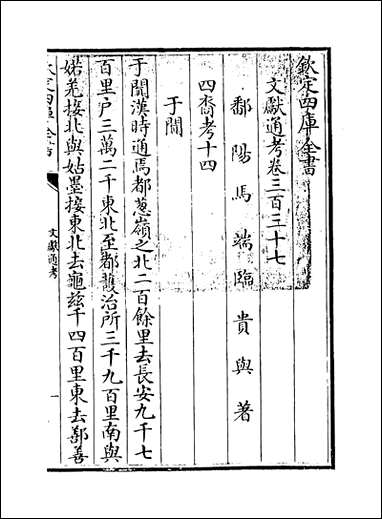 欽定四庫全書
文獻通考卷三百三十七
鄱陽馬端臨貴與著
四裔考十四
于闐
于闐漢時通焉都蔥嶺之北二百餘里去長安九千七
百里戶三萬二千東北至都護治所三千九百里南與
婼羌接北與姑墨接東北去龜茲千四百里東去鄯善
文獻通考
一